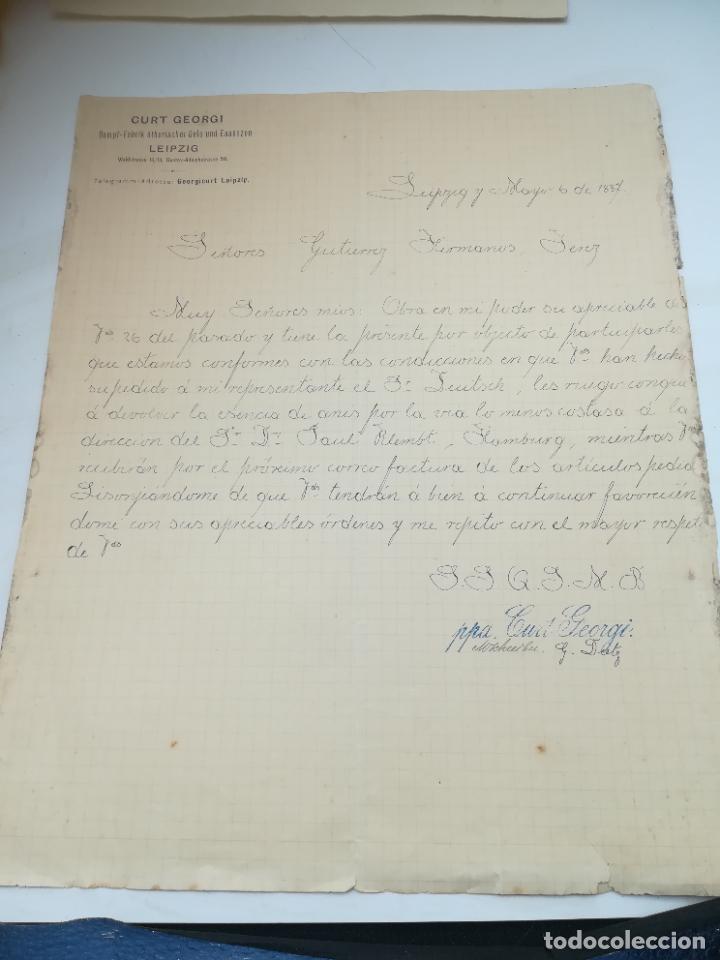 CURT GEORGI
Dampf-Fabrik ätherischer Oele und Essenzen
LEIPZIG
Telegramm-Adresse: Georgicurt Leipzig.
Leipzig y Mayo 6 de 1887.
Señores Gutierrez Hermanos, Jerez
Muy Señores mios: Obra en mi poder su apreciable de
Vds 26 del pasado y tiene la présente por objecto de participarles
que estamos conformes con las condicciones en que Vds han hecho
su pedido á mi representante el Sr Deutsch, les ruego
á devolver la esencia de anis por la via lo menos costasa á la
direccion del Sr Dr Paul Klembt, Hamburg, mientras Vds
recibirán por el próximo correo factura de los artículos pedid
Lisonjiándome de que Vds tendrán á bien á continuar favorecién
dome con sus apreciables órdenes y me repito con el mayor respet
de Vds
S. S. Q. S. M. B
ppa. Curt Georgi.
todocoleccion
todocoleccion.net